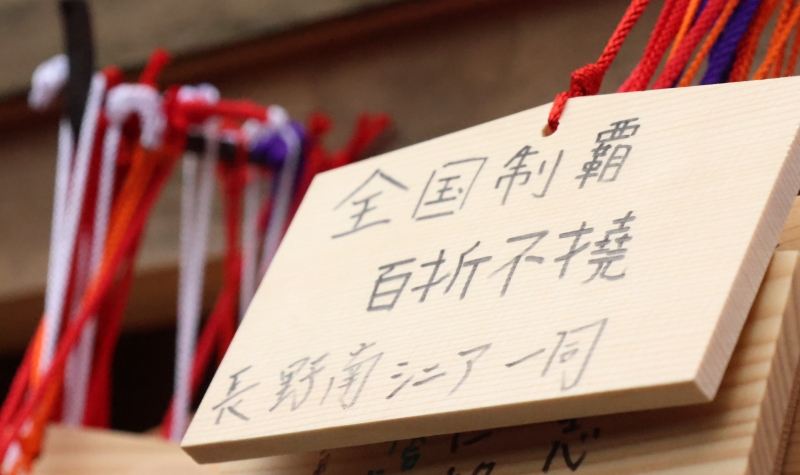 全国制覇
百折不撓
長野南シニア一同